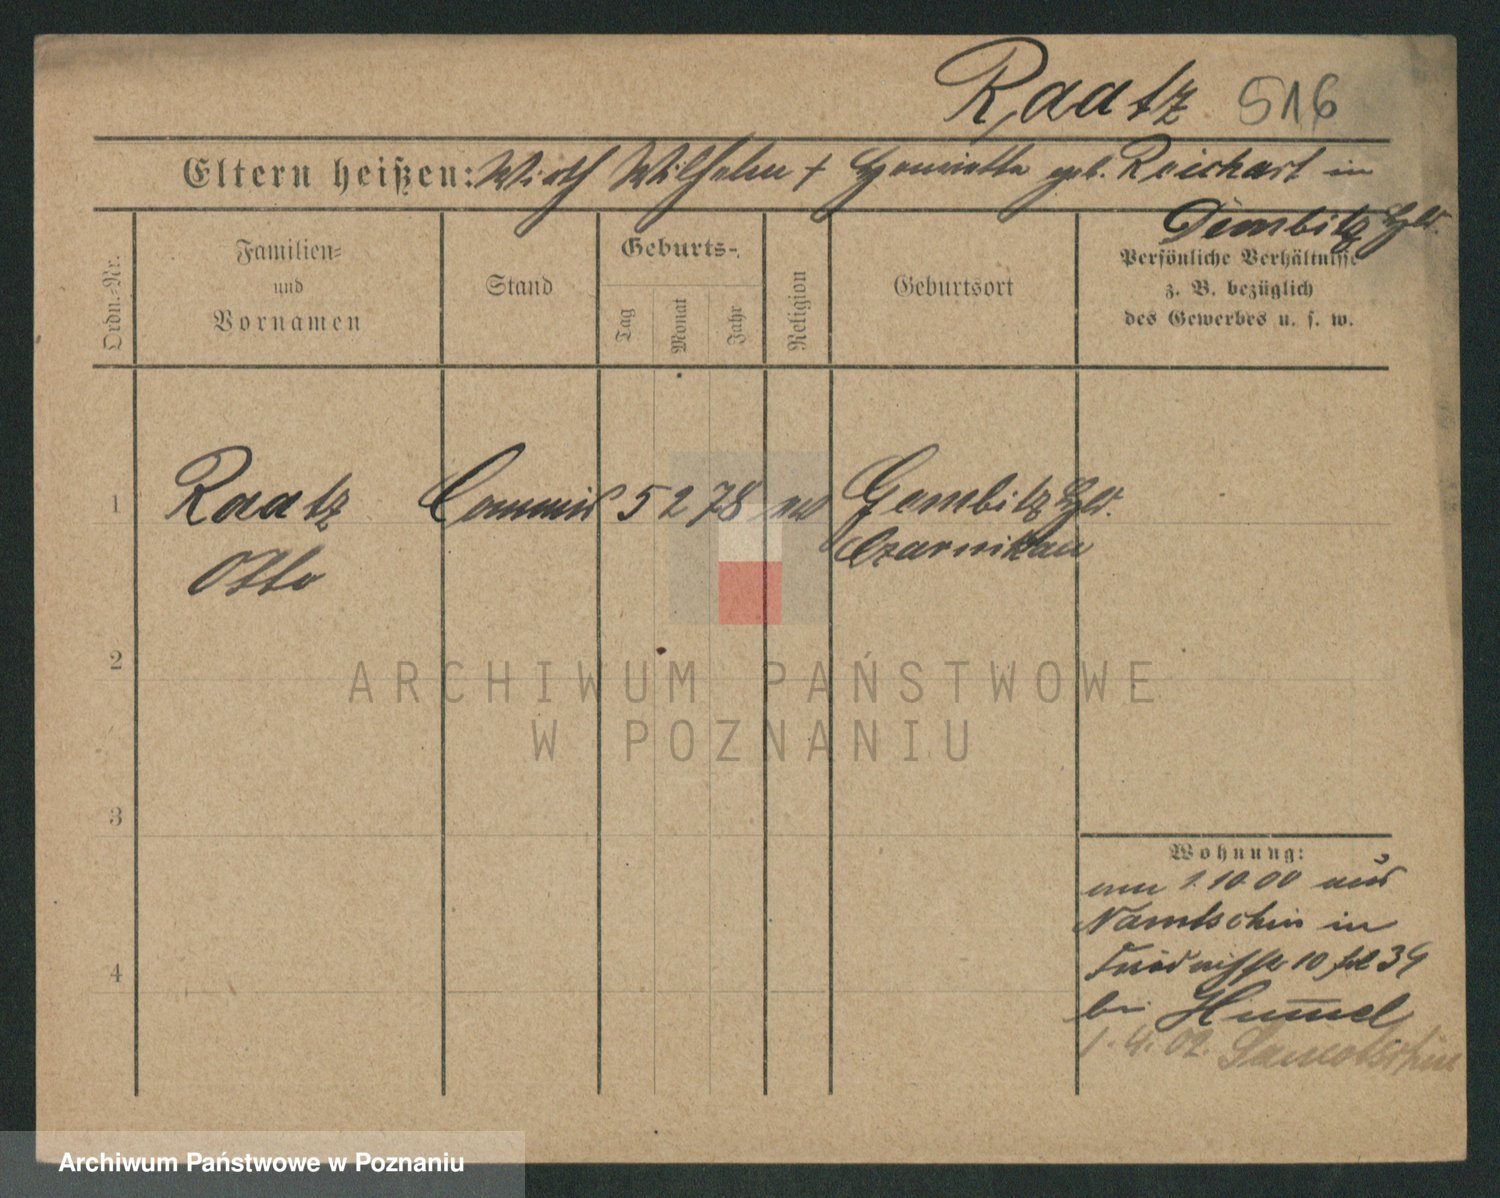 Raatz 516
Eltern heißen: Wirth Wilhelm + Henriette geb. Reichart in
Dembitz Hld.
Ordn.-Nr.
Familien-
und
Vornamen
Stand
Geburts-
Tag
Monat
Jahr
Religion
Geburtsort
Persönliche Verhältnisse
z. B. bezüglich
des Gewerbes u. s. w.
1 Raatz Commis 5 2 78 Gembitz Hld.
Otto Czarnikau
2
ARCHIWUM PAŃSTWOWE
W POZNANIU
3
Wohnung:
1.10.00 aus
in
4
10 34
bei Hummel
1.4.02. Samotschin
Archiwum Państwowe w Poznaniu